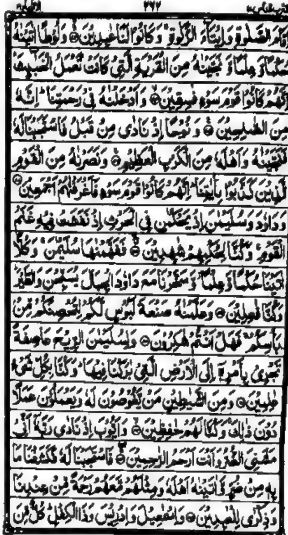 اِقَامَ الصَّلٰوةِ وَاِيْتَآءَ الزَّكٰوةِ ۚ وَكَانُوْا لَنَا عٰبِدِيْنَ ۙ وَلُوْطًا اٰتَيْنٰهُ
حُكْمًا وَّعِلْمًا وَّنَجَّيْنٰهُ مِنَ الْقَرْيَةِ الَّتِيْ كَانَتْ تَّعْمَلُ الْخَبٰٓئِثَ ؕ
اِنَّهُمْ كَانُوْا قَوْمَ سَوْءٍ فٰسِقِيْنَ ۙ وَاَدْخَلْنٰهُ فِيْ رَحْمَتِنَا ؕ اِنَّهٗ
مِنَ الصّٰلِحِيْنَ ۙ وَنُوْحًا اِذْ نَادٰى مِنْ قَبْلُ فَاسْتَجَبْنَا لَهٗ
فَنَجَّيْنٰهُ وَاَهْلَهٗ مِنَ الْكَرْبِ الْعَظِيْمِ ۚ وَنَصَرْنٰهُ مِنَ الْقَوْمِ
الَّذِيْنَ كَذَّبُوْا بِاٰيٰتِنَا ؕ اِنَّهُمْ كَانُوْا قَوْمَ سَوْءٍ فَاَغْرَقْنٰهُمْ اَجْمَعِيْنَ
وَدَاوٗدَ وَسُلَيْمٰنَ اِذْ يَحْكُمٰنِ فِي الْحَرْثِ اِذْ نَفَشَتْ فِيْهِ غَنَمُ
الْقَوْمِ ۚ وَكُنَّا لِحُكْمِهِمْ شٰهِدِيْنَ ۙ فَفَهَّمْنٰهَا سُلَيْمٰنَ ۚ وَكُلًّا
اٰتَيْنَا حُكْمًا وَّعِلْمًا ؗ وَّسَخَّرْنَا مَعَ دَاوٗدَ الْجِبَالَ يُسَبِّحْنَ وَالطَّيْرَ ؕ
وَكُنَّا فٰعِلِيْنَ وَعَلَّمْنٰهُ صَنْعَةَ لَبُوْسٍ لَّكُمْ لِتُحْصِنَكُمْ مِّنْ
بَاْسِكُمْ ۚ فَهَلْ اَنْتُمْ شٰكِرُوْنَ وَلِسُلَيْمٰنَ الرِّيْحَ عَاصِفَةً
تَجْرِيْ بِاَمْرِهٖٓ اِلَى الْاَرْضِ الَّتِيْ بٰرَكْنَا فِيْهَا ؕ وَكُنَّا بِكُلِّ شَيْءٍ
عٰلِمِيْنَ وَمِنَ الشَّيٰطِيْنِ مَنْ يَّغُوْصُوْنَ لَهٗ وَيَعْمَلُوْنَ عَمَلًا
دُوْنَ ذٰلِكَ ۚ وَكُنَّا لَهُمْ حٰفِظِيْنَ ۙ وَاَيُّوْبَ اِذْ نَادٰى رَبَّهٗٓ اَنِّيْ
مَسَّنِيَ الضُّرُّ وَاَنْتَ اَرْحَمُ الرّٰحِمِيْنَ ۚ فَاسْتَجَبْنَا لَهٗ فَكَشَفْنَا مَا
بِهٖ مِنْ ضُرٍّ وَّاٰتَيْنٰهُ اَهْلَهٗ وَمِثْلَهُمْ مَّعَهُمْ رَحْمَةً مِّنْ عِنْدِنَا
وَذِكْرٰى لِلْعٰبِدِيْنَ وَاِسْمٰعِيْلَ وَاِدْرِيْسَ وَذَا الْكِفْلِ ؕ كُلٌّ مِّنَ